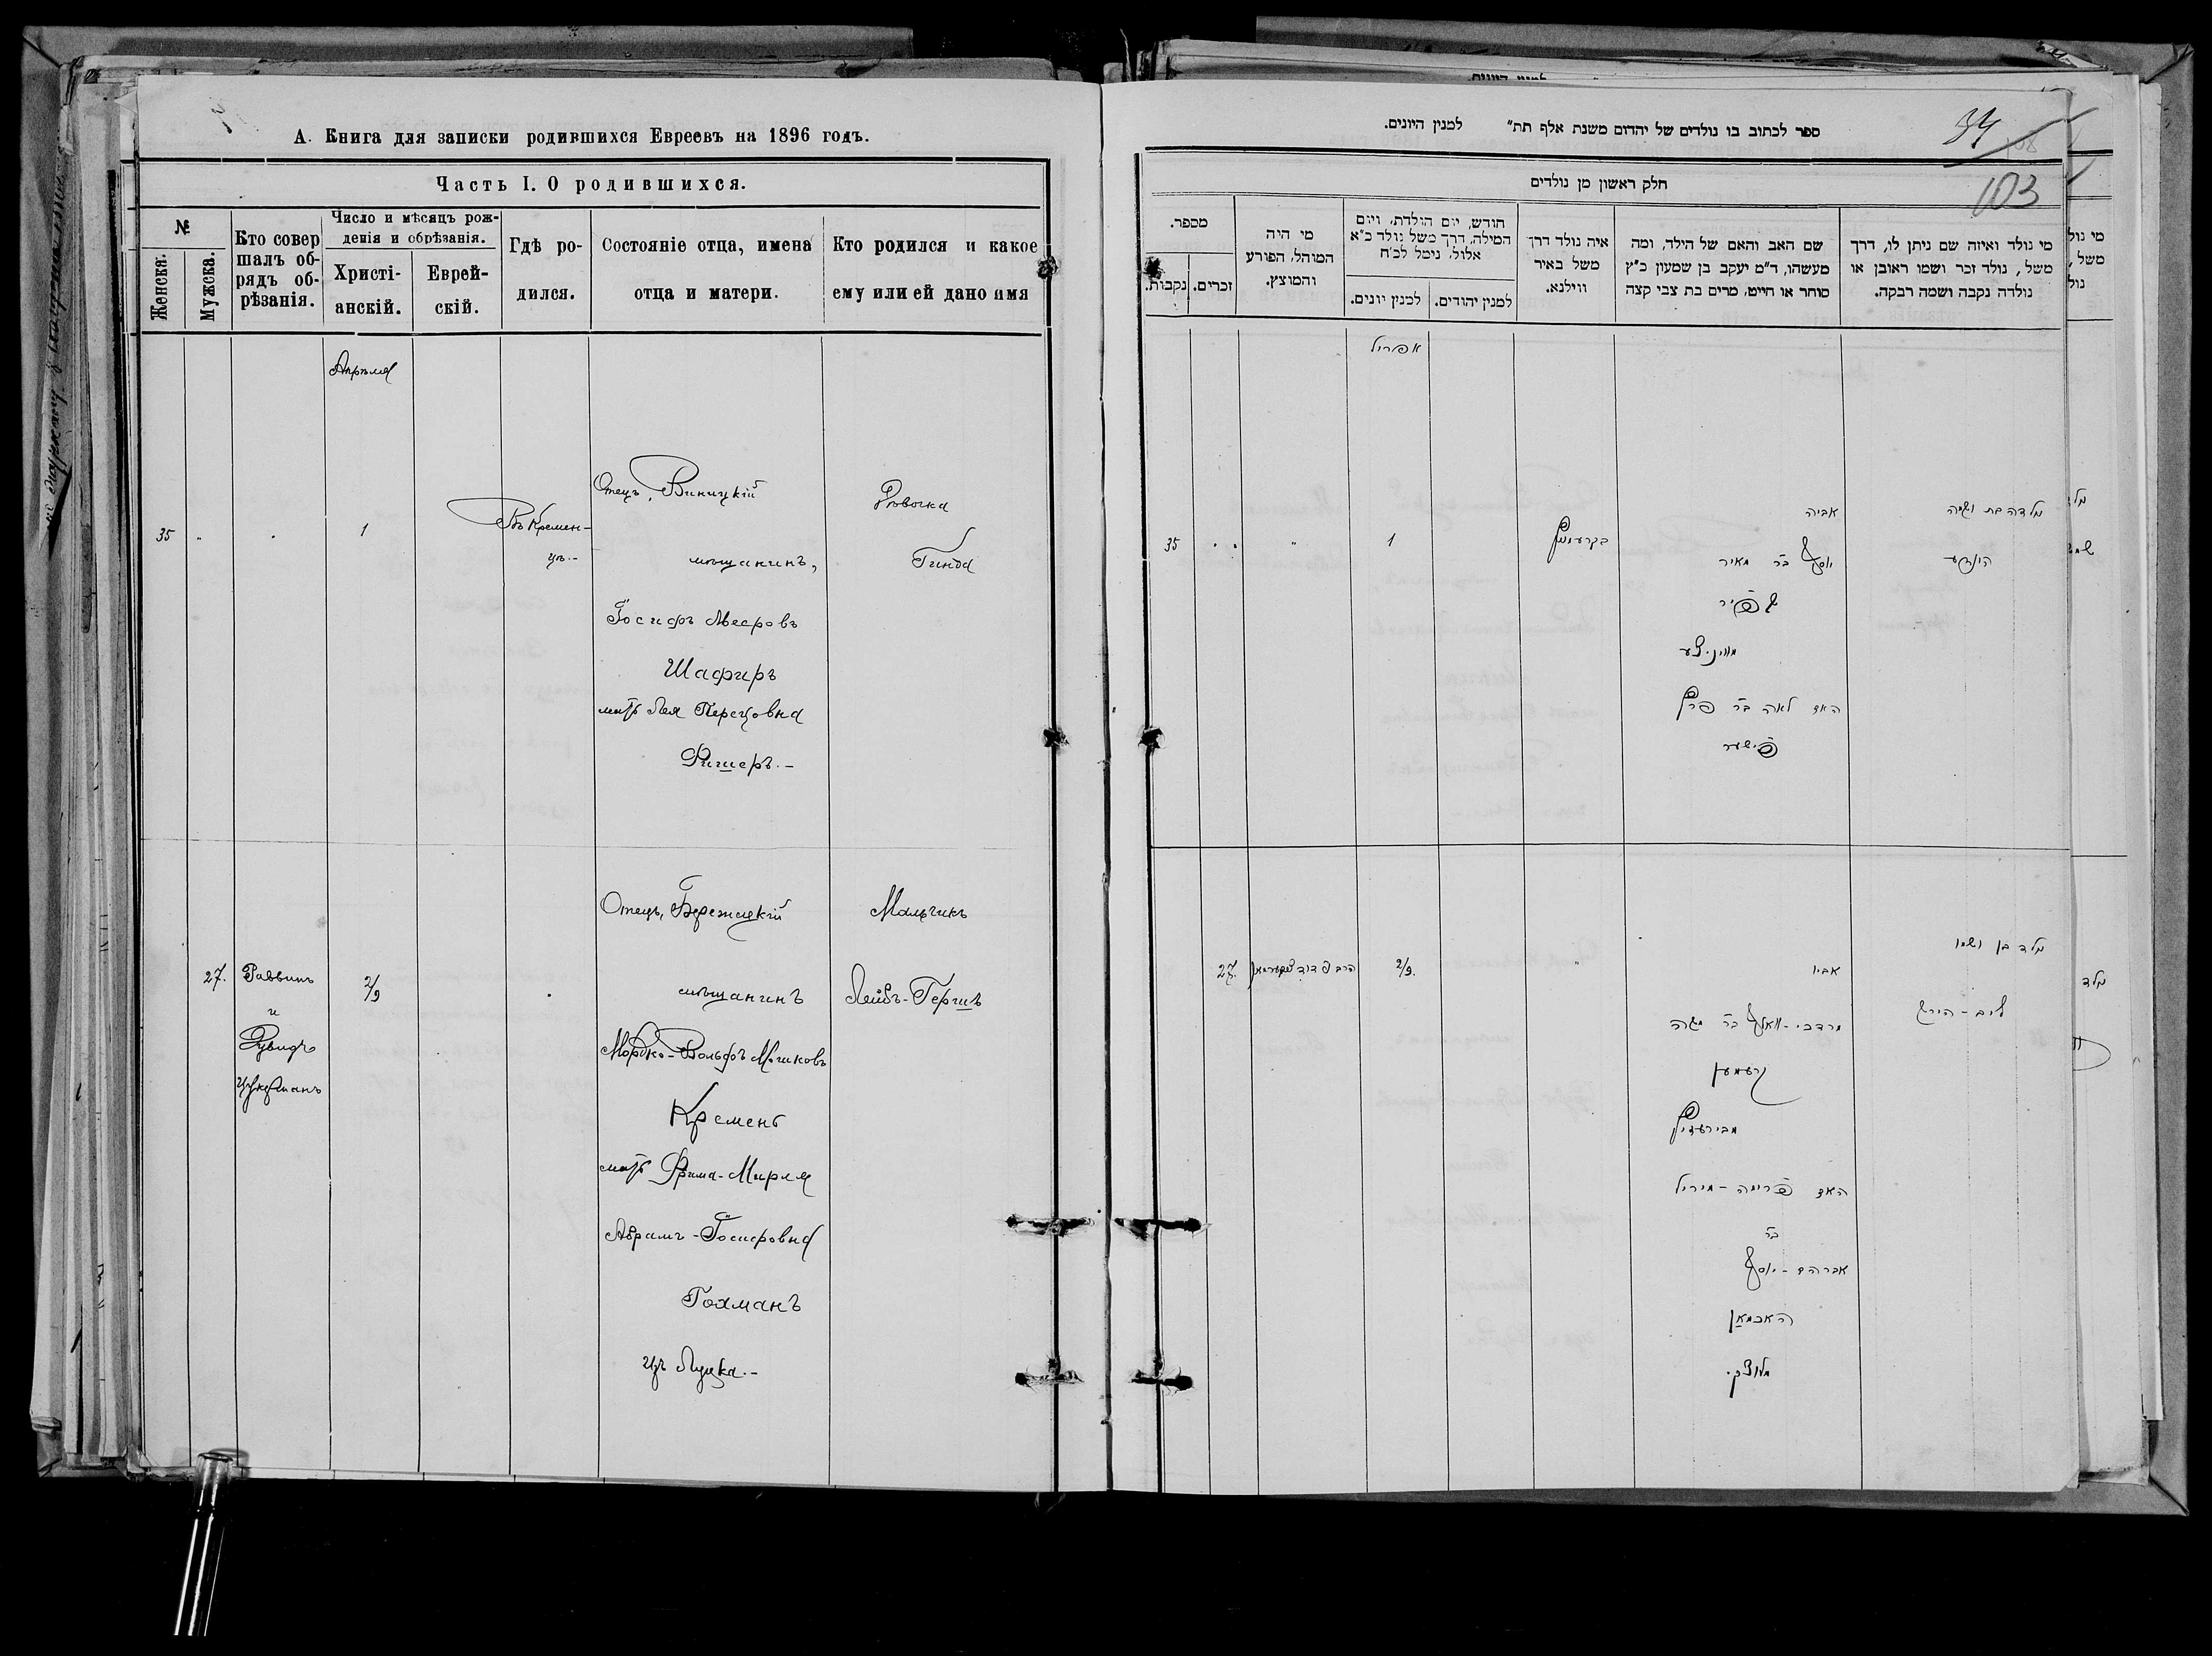 А. Книга для записки родившихся Евреевъ на 1896 годъ.
Часть I. О родившихся.
№
Женска.
Мужска.
Кто совер
шалъ об-
рядъ об-
рѣзанія.
Число и мѣсяцъ рож-
денія и обрѣзанія.
Христі-
анскій.
Еврей-
скій.
Гдѣ ро-
дился.
Состояніе отца, имена
отца и матери.
Кто родился и какое
ему или ей дано имя
Апрѣля
35
1
Въ Кремен-
цѣ.-
Отецъ, Виницкій
мѣщанинъ,
Іосифъ Мееровъ
Шафиръ
мать Лея Перецовна
Фишеръ.-
Дѣвочка
Гинда
27.
Раввинъ
и
Дувидъ
Цукерманъ
2/9
Отецъ, Бережецкій
мѣщанинъ
Мордко-Вольфъ Мошковъ
Кремень
мать Фрима-Мирля
Абрамъ-Іосифовна
Гохманъ
изъ Луцка.-
Мальчикъ
Лейбъ-Гершъ
ספר לכתוב בו נולדים של יהדום משנת אלף תת״ למנין היונים.
34
103
חלק ראשון מן נולדים
מספר.
נקבות.
זכרים.
מי היה
המוהל, הפורע
והמוצץ.
חודש, יום הולדת, ויום
המילה, דרך משל נולד כ״א
אלול, נימל לכ״ח
למנין יונים.
למנין יהודים.
איה נולד דרך
משל באיר
ווילנא.
שם האב והאם של הילד, ומה
מעשהו, ד״מ יעקב בן שמעון כ״ץ
סוחר או חייט, מרים בת צבי קצה
מי נולד ואיזה שם ניתן לו, דרך
משל, נולד זכר ושמו ראובן או
נולדה נקבה ושמה רבקה.
אפריל
35
1
בקרעמניץ
אביה
יוסף בר מאיר
שפיר
מוויניצע
האם לאה בר פרץ
פישער
נולדה בת ושמה
הינדע
27.
הרב ודוד צוקערמאן
2/9.
אביו
מרדכי-וואלף בר משה
קרעמען
האם פרימה-מירל
בר
אברהם-יוסף
האכמאן
מלוצק.
נולד בן ושמו
ליב-הירש